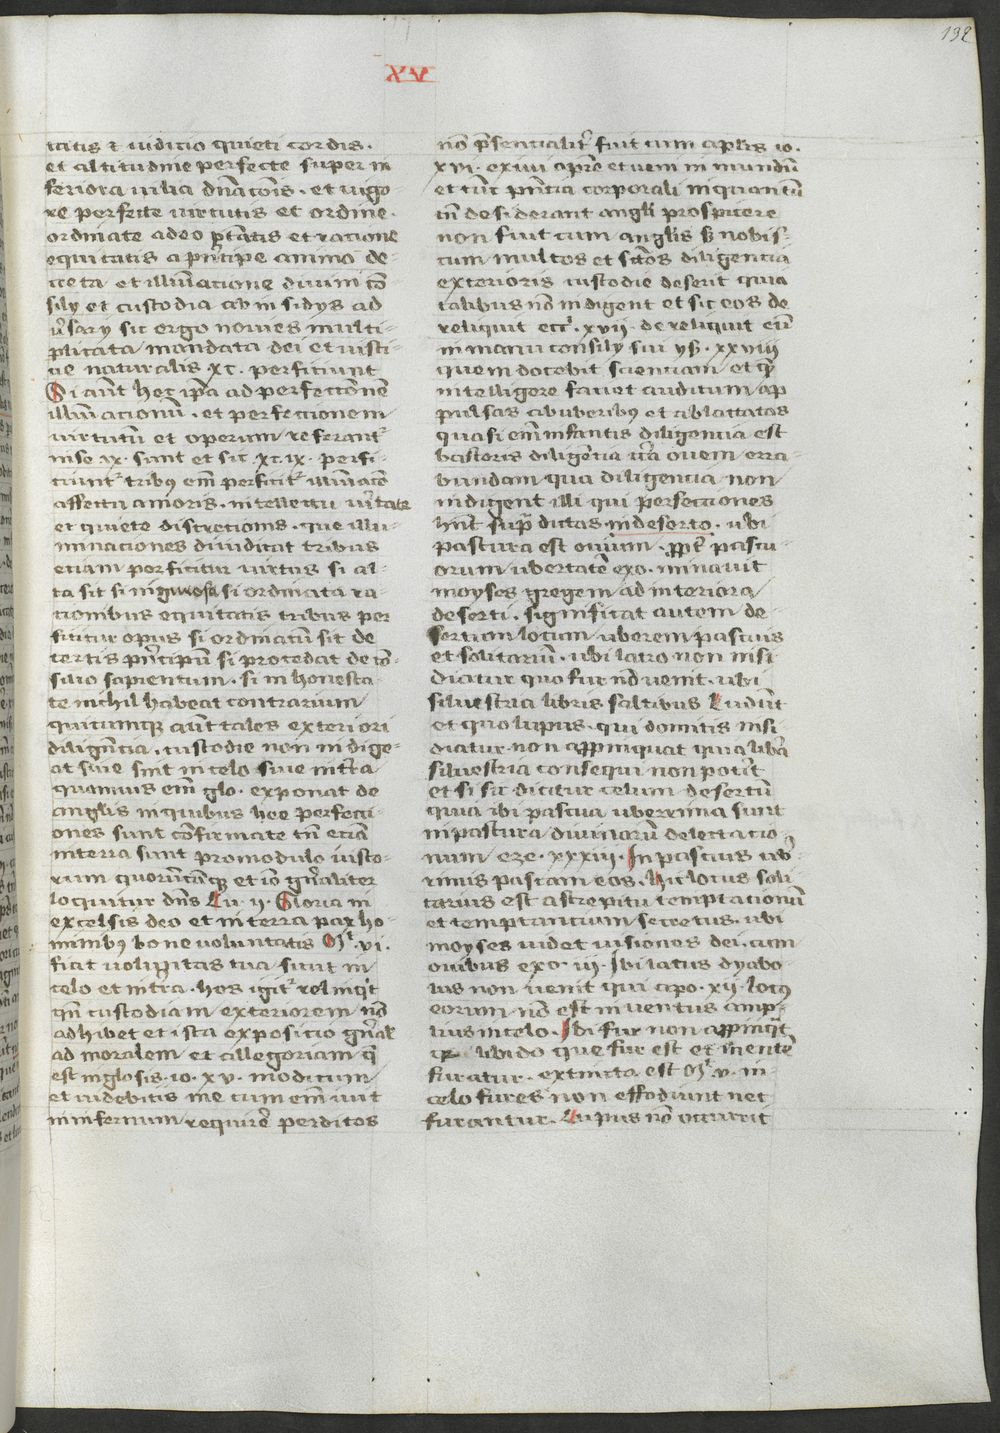 132
XV
tatis et iudicio quieti cordis.
et altitudine perfecte super in
feriora uilia dnãtois. et uigo
re perfecte uirtutis et ordine.
ordinate adeo ptãtis et racione
equitatis a pncipe animo de-
creta et illuiatione diuini cõ
silij et custodia ab insidijs ad
uersarij sic ergo nouies multi-
plicata mandata dei et iusti-
tie naturalis xc. perficiunt
Si aũt hec ipa ad perfectionẽ
illuiationũ. et perfectionem
uirtutũ et operum referantr
inse ix. sunt et sic xc.ix. perfi-
ciuntr tribus em perficitr illuiatio
affectu amoris. intellectu uitate
et quiete discretionis. que illu-
minaciones diuiditat tribus
etiam perficitur uirtus si al-
ta sit si uigorosa si ordinata ra-
tionibus equitatis tribus per
ficitur opus si ordinatũ sit de
certis pncipũ si procedat de cõ-
silio sapientum. si inhonesta-
te nichil habeat contrarium
quicumque aũt tales exteriori
diligẽntia. custodie non indige-
at siue sint in celo siue in tra
quamuis em glo. exponat de
anglis in quibus hee perfecti-
ones sunt cõfirmate tñ etiã
in terra sunt pro modulo iusto-
rum quorũcumque et iõ gñaliter
loquitur dñs Lu. ij. Gloria in
excelsis deo et in terra pax ho-
minibus bone uoluntatis Mt. vi.
fiat uoluntas tua sicut in
celo et in tra. hos igitr relinqit
qñ custodiam exteriorem nõ
adhibet et ista expositio gñal
ad moralem et allegoriam q
est in glosis. io. xv. modicum
et uidebitis me cum em iuit
in infernum requirere perditos
nõ psentialiter fuit cum aplis io.
xvi. exiui a pre et ueni in mundũ
et tũc pñcia corporali in quantũ
in desiderant angli prospicere
non fuit cum anglis s nobis-
cum multos et sctõs diligencia
exterioris custodie deserit quia
talibus nõ indigent et sic eos de
reliquit ecci. xvij. dereliquit eũ
in manu consilij sui ys. xxviij
quem docebit scientiam et q
intelligere faciet auditum ap
pulsas ab uberibus et ablactatos
quasi em infantis diligencia est
pastoris diligẽtia cira ouem erra-
bundam qua diligencia non
indigent illi qui perfectiones
hñt supra dictas in deserto. ubi
pastura est ouium. pp pascu-
orum ubertatẽ exo. minauit
moyses gregem ad interiora
deserti. significat autem de-
sertum locum uberem pascuis
et solitariũ. ubi latro non insi
diatur quo fur nõ uenit. ubi
siluestria libris saltibus Ludũt
et quo lupus. qui domitis insi
diatur. non appinquat quia libera
siluestria consequi non potit
et si sic dicitur celum desertũ
quia ibi pascua uberrima sunt
in pastura diuinarũ delectatio
num eze. xxxiij. In pascuis ub
rimis pascam eos. hic locus soli
tarius est a strepitu temptationũ
et temptantium secretus. ubi
moyses uidet uisiones dei. cum
ouibus exo iij. Ibi latus dyabo
lus non uenit qui apo. xij. locus
eorum nõ est inuentus amp-
lius in celo. Ibi fur non appinqit
libido que fur est et mentẽ
furatur. extincta est Mt. v. in
celo fures non effodiunt nec
furantur. Lupus nõ occurrit